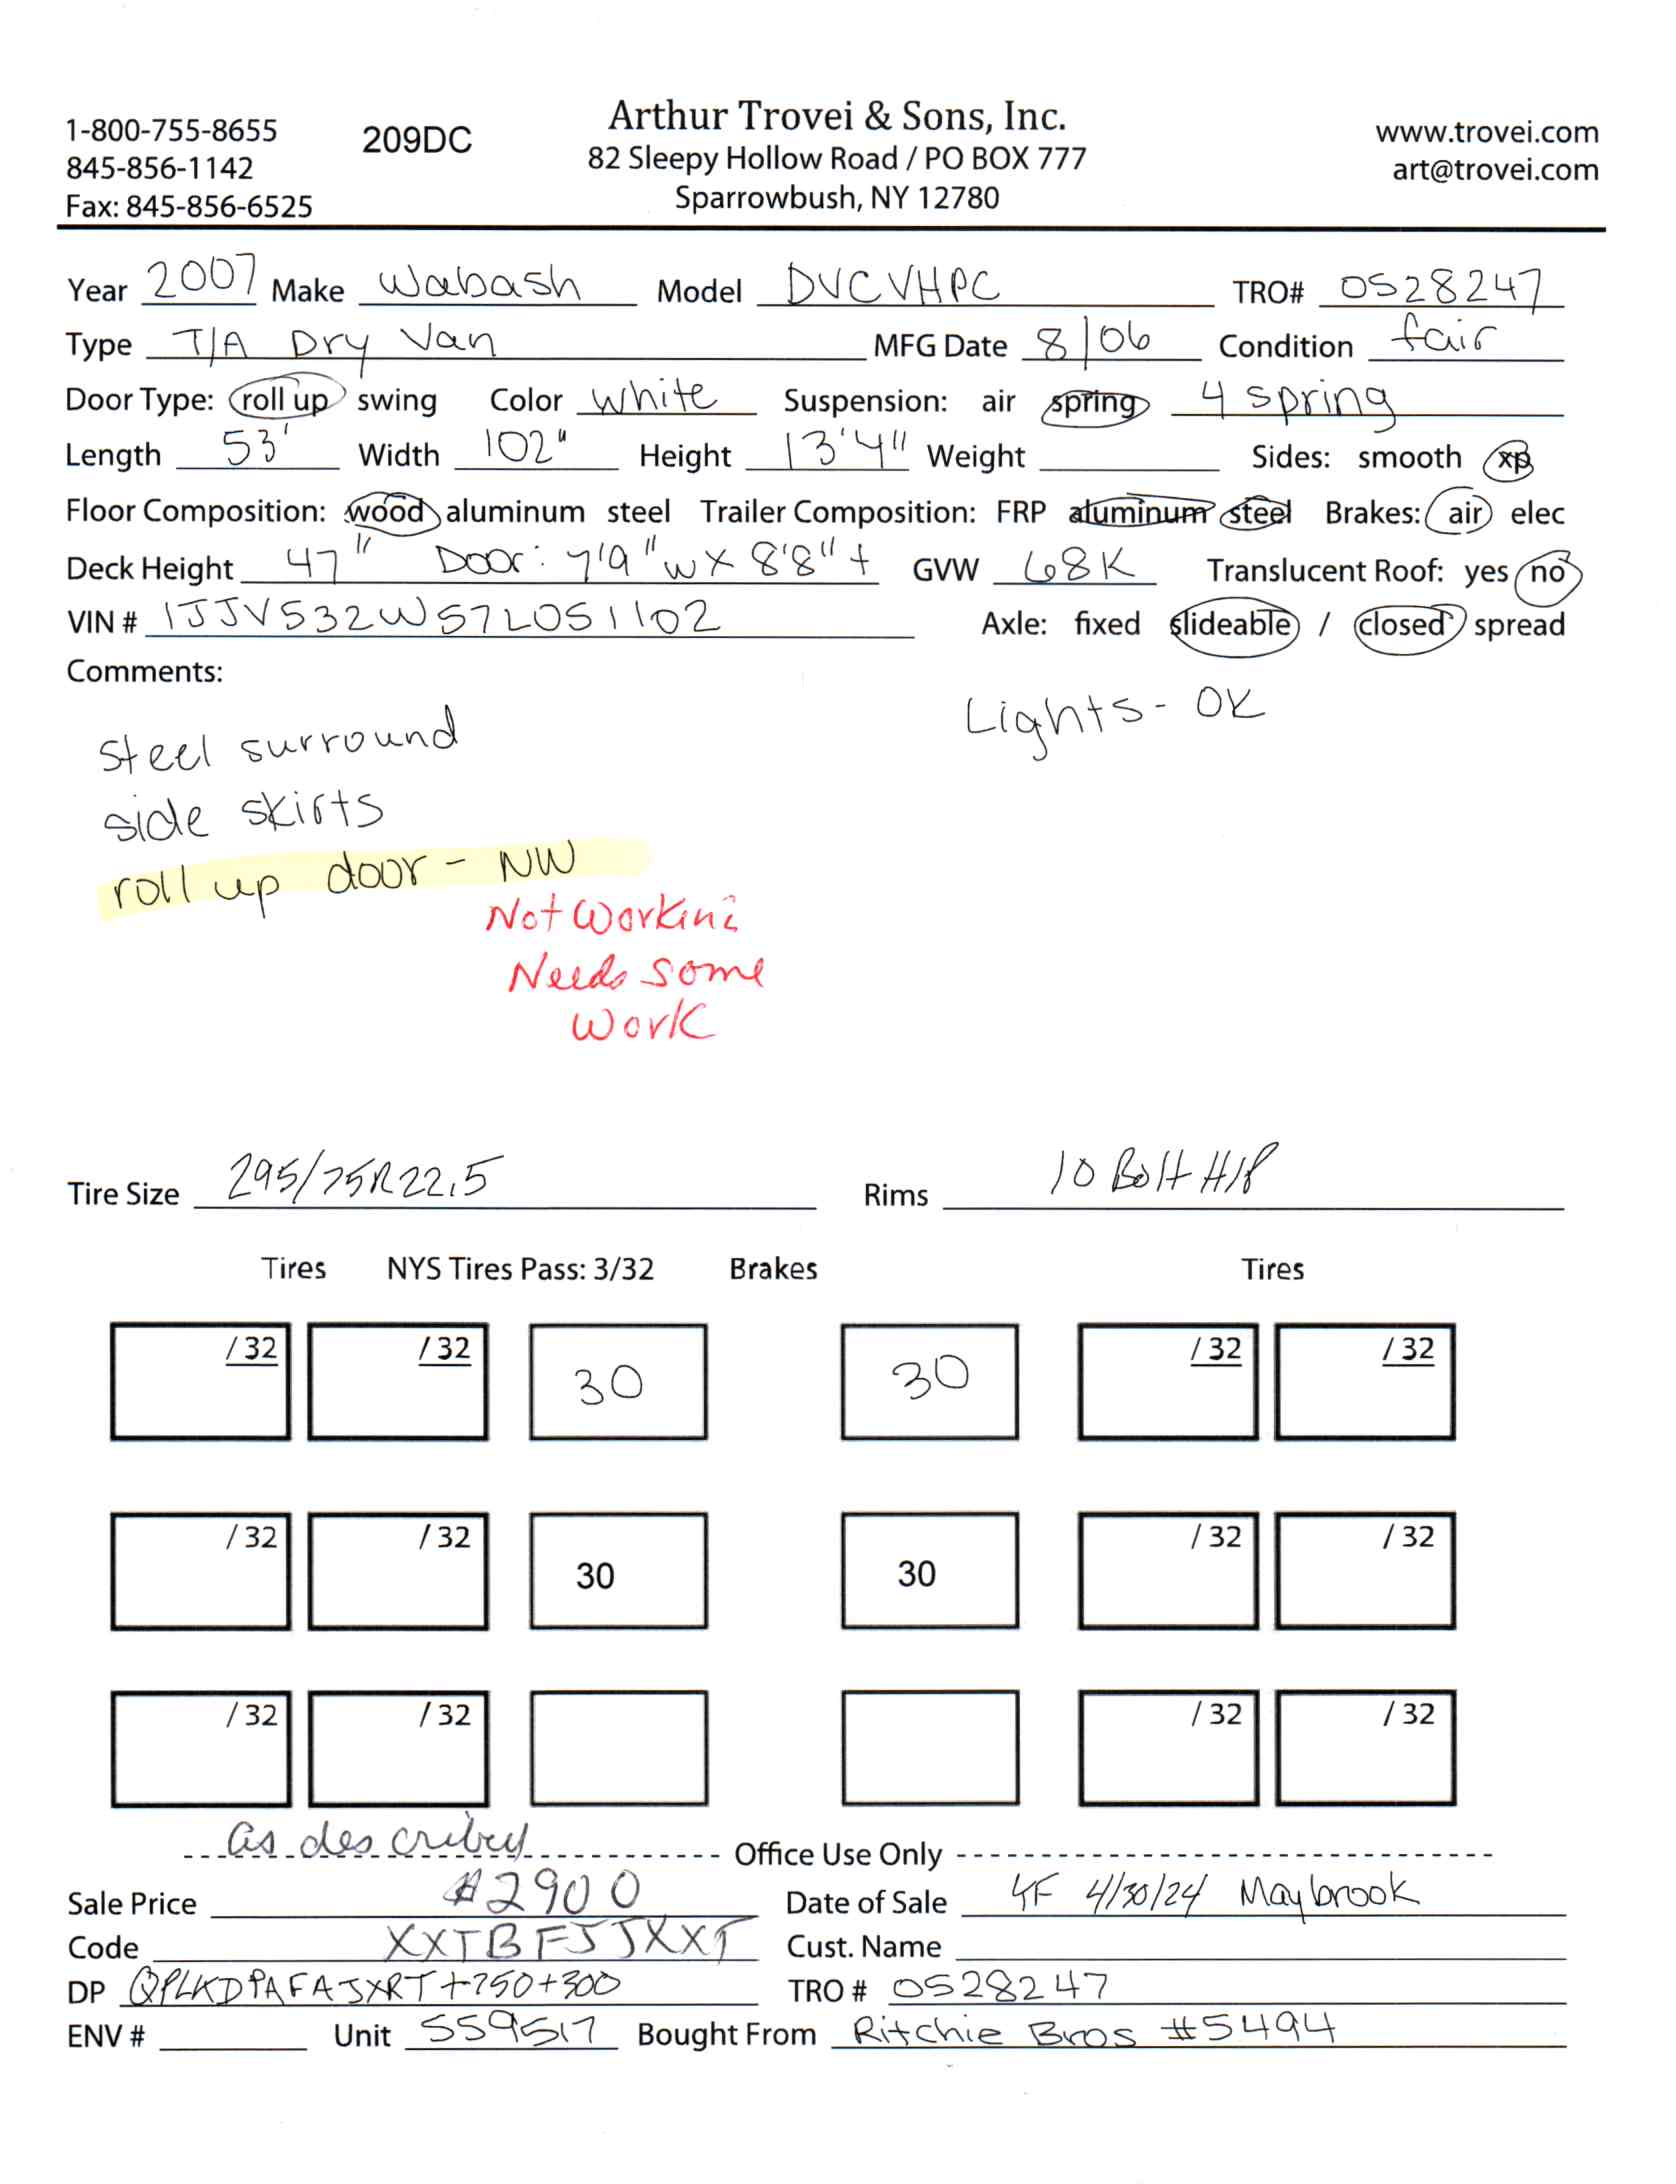 Arthur Trovei & Sons, Inc.
1-800-755-8655 209DC 82 Sleepy Hollow Road / PO BOX 777 www.trovei.com
845-856-1142 Sparrowbush, NY 12780 art@trovei.com
Fax: 845-856-6525
Year 2007 Make Wabash Model DVCVHPC TRO# 0528247
Type T/A Dry Van MFG Date 8/06 Condition fair
Door Type: roll up swing Color white Suspension: air spring 4 spring
Length 53' Width 102" Height 13'4" Weight Sides: smooth xp
Floor Composition: wood aluminum steel Trailer Composition: FRP aluminum steel Brakes: air elec
Deck Height 47" Door: 7'9"w x 8'8"t GVW 68K Translucent Roof: yes no
VIN # 1JJV532W57L051102 Axle: fixed slideable / closed spread
Comments:
Lights - OK
steel surround
side skirts
roll up door - NW
Not Working
Needs Some
Work
Tire Size 295/75R22.5 Rims 10 Bolt H/P
Tires NYS Tires Pass: 3/32 Brakes Tires
/32 /32 30 30 /32 /32
/32 /32 30 30 /32 /32
/32 /32 /32 /32
as described
Office Use Only
Sale Price $2900 Date of Sale 4/30/24 Maybrook
Code XXTBFJJXXT Cust. Name
DP QPLKDPAFAJXRT+750+300 TRO # 0528247
ENV # Unit 559517 Bought From Ritchie Bros #5494